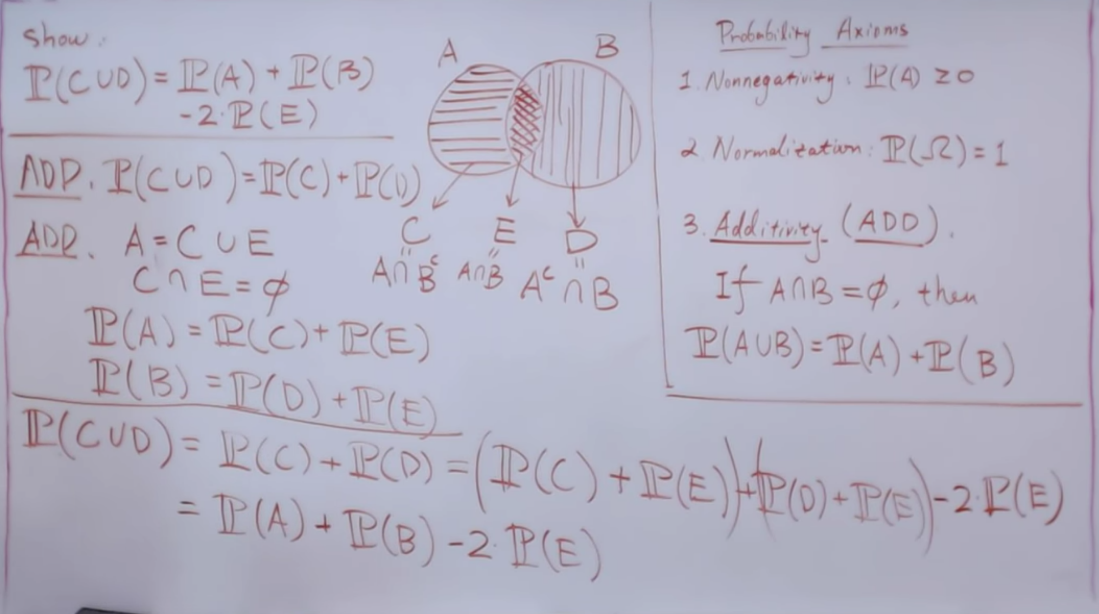 Show:
ℙ(C∪D) = ℙ(A) + ℙ(B)
-2·ℙ(E)
ADD. ℙ(C∪D) = ℙ(C) + ℙ(D)
ADD. A = C ∪ E
C ∩ E = ϕ
ℙ(A) = ℙ(C) + ℙ(E)
ℙ(B) = ℙ(D) + ℙ(E)
A B
C E D
= = =
A∩Bᶜ A∩B Aᶜ∩B
Probability Axioms
1. Nonnegativity: ℙ(A) ≥ 0
2. Normalization: ℙ(Ω) = 1
3. Additivity (ADD).
If A∩B = ϕ, then
ℙ(A∪B) = ℙ(A) + ℙ(B)
ℙ(C∪D) = ℙ(C) + ℙ(D) = (ℙ(C) + ℙ(E)) + (ℙ(D) + ℙ(E)) - 2·ℙ(E)
= ℙ(A) + ℙ(B) - 2·ℙ(E)